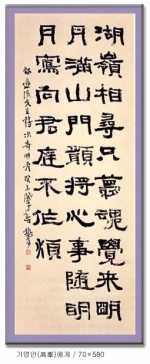 湖嶺相尋只夢魂覺來明
月滿山門願將心事隨明
月寫向君庭不作煩
기명언(高峯)에게 / 70×580